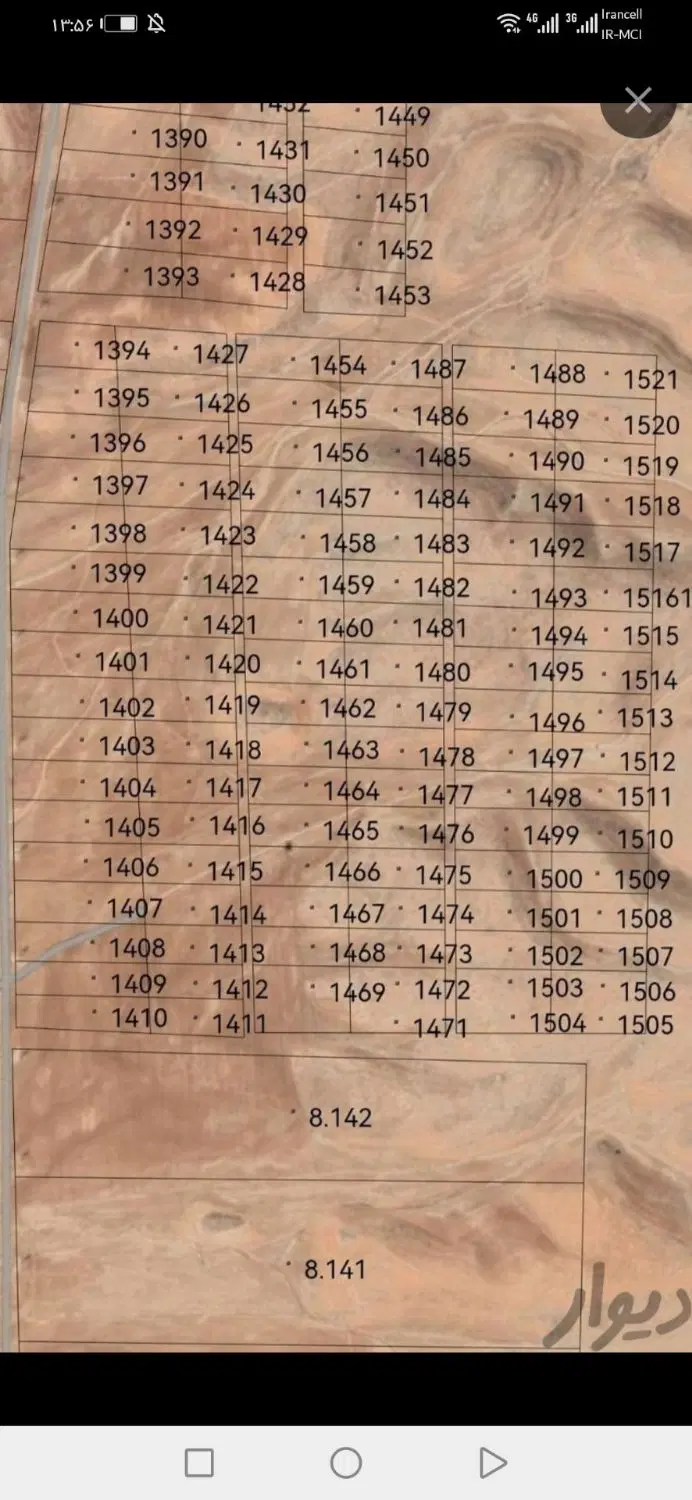 ۱۳:۵۶
4G 3G Irancell
IR-MCI
1432 1449
1390 1431 1450
1391 1430 1451
1392 1429 1452
1393 1428 1453
1394 1427 1454 1487 1488 1521
1395 1426 1455 1486 1489 1520
1396 1425 1456 1485 1490 1519
1397 1424 1457 1484 1491 1518
1398 1423 1458 1483 1492 1517
1399 1422 1459 1482 1493 15161
1400 1421 1460 1481 1494 1515
1401 1420 1461 1480 1495 1514
1402 1419 1462 1479 1496 1513
1403 1418 1463 1478 1497 1512
1404 1417 1464 1477 1498 1511
1405 1416 1465 1476 1499 1510
1406 1415 1466 1475 1500 1509
1407 1414 1467 1474 1501 1508
1408 1413 1468 1473 1502 1507
1409 1412 1469 1472 1503 1506
1410 1411 1471 1504 1505
8.142
8.141
دیوار